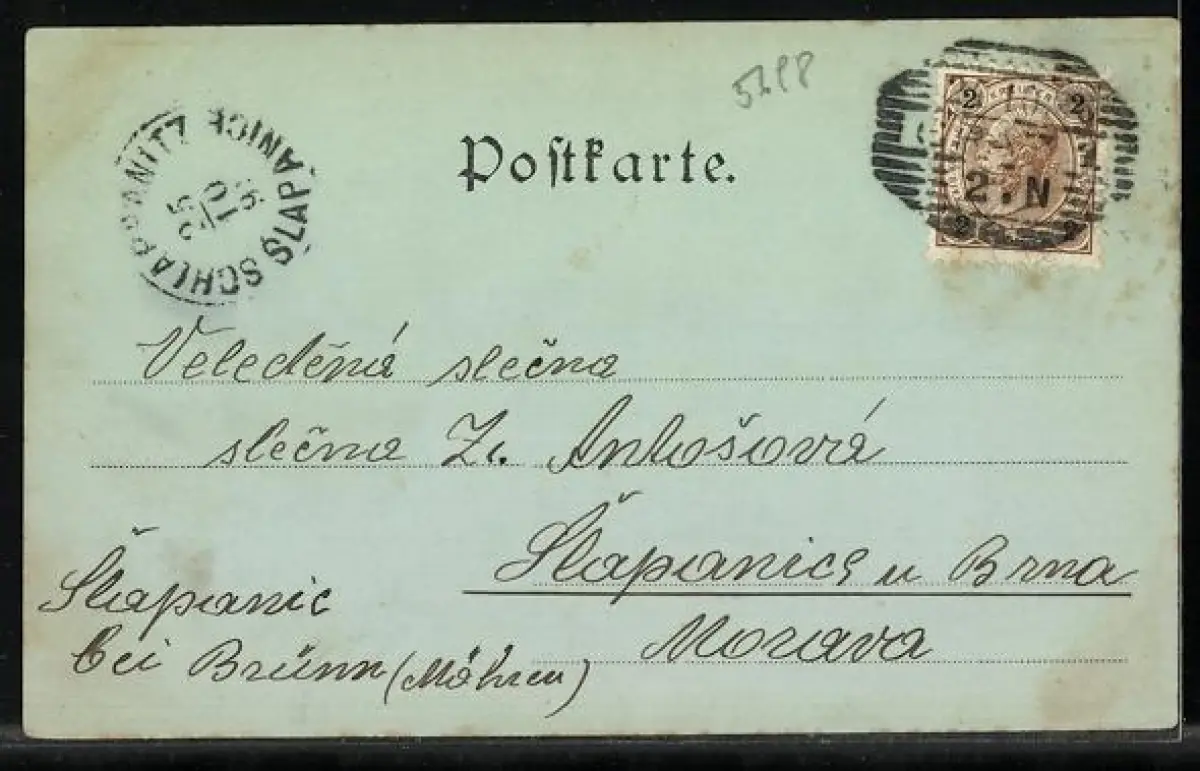 Postkarte.
2 2
2. N
2 2
SCHLAPPANITZ ŠLAPANICE
25
10
Veleděná slečna
slečna Zd. Antošová
Šlapanice u Brna
Morava
Šlapanic
bei Brünn (Mähren)